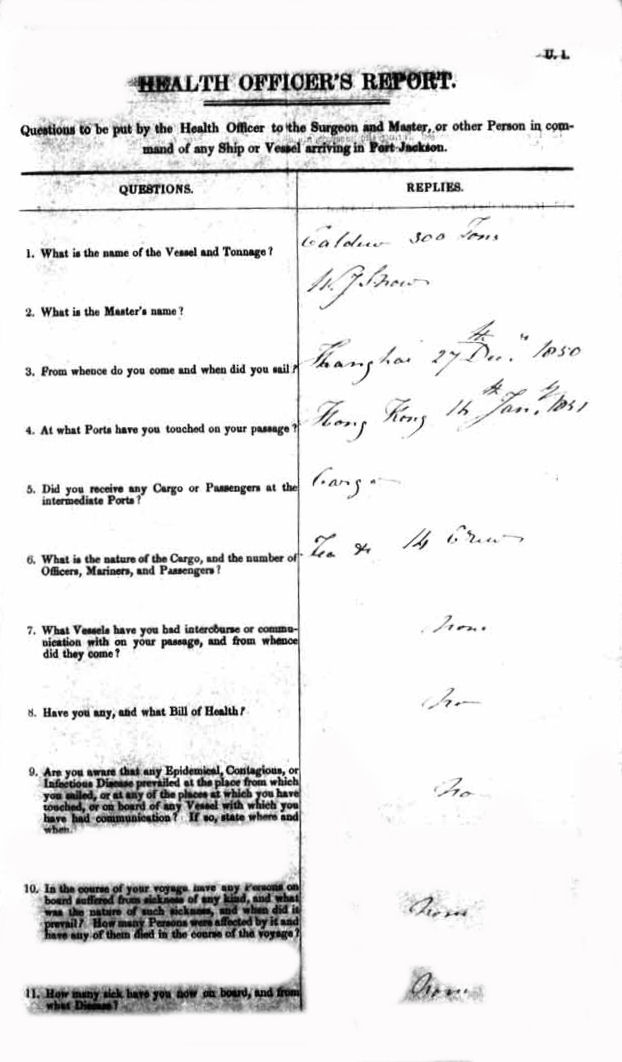 U. 1.
HEALTH OFFICER'S REPORT.
Questions to be put by the Health Officer to the Surgeon and Master, or other Person in com-
mand of any Ship or Vessel arriving in Port Jackson.
QUESTIONS.
REPLIES.
1. What is the name of the Vessel and Tonnage?
Caldew 300 Tons
2. What is the Master's name?
W. J.
3. From whence do you come and when did you sail?
Shanghai 27th Decr. 1850
4. At what Ports have you touched on your passage?
Hong Kong 14th Jany. 1851
5. Did you receive any Cargo or Passengers at the
intermediate Ports?
Cargo
6. What is the nature of the Cargo, and the number of
Officers, Mariners, and Passengers?
Tea & 14 Crew
7. What Vessels have you had intercourse or commu-
nication with on your passage, and from whence
did they come?
None
8. Have you any, and what Bill of Health?
No
9. Are you aware that any Epidemical, Contagious, or
Infectious Disease prevailed at the place from which
you sailed, or at any of the places at which you have
touched, or on board of any Vessel with which you
have had communication? If so, state where and
when.
No
10. In the course of your voyage have any Persons on
board suffered from sickness of any kind, and what
was the nature of such sickness, and when did it
prevail? How many Persons were affected by it and
have any of them died in the course of the voyage?
None
11. How many sick have you now on board, and from
what Disease?
None